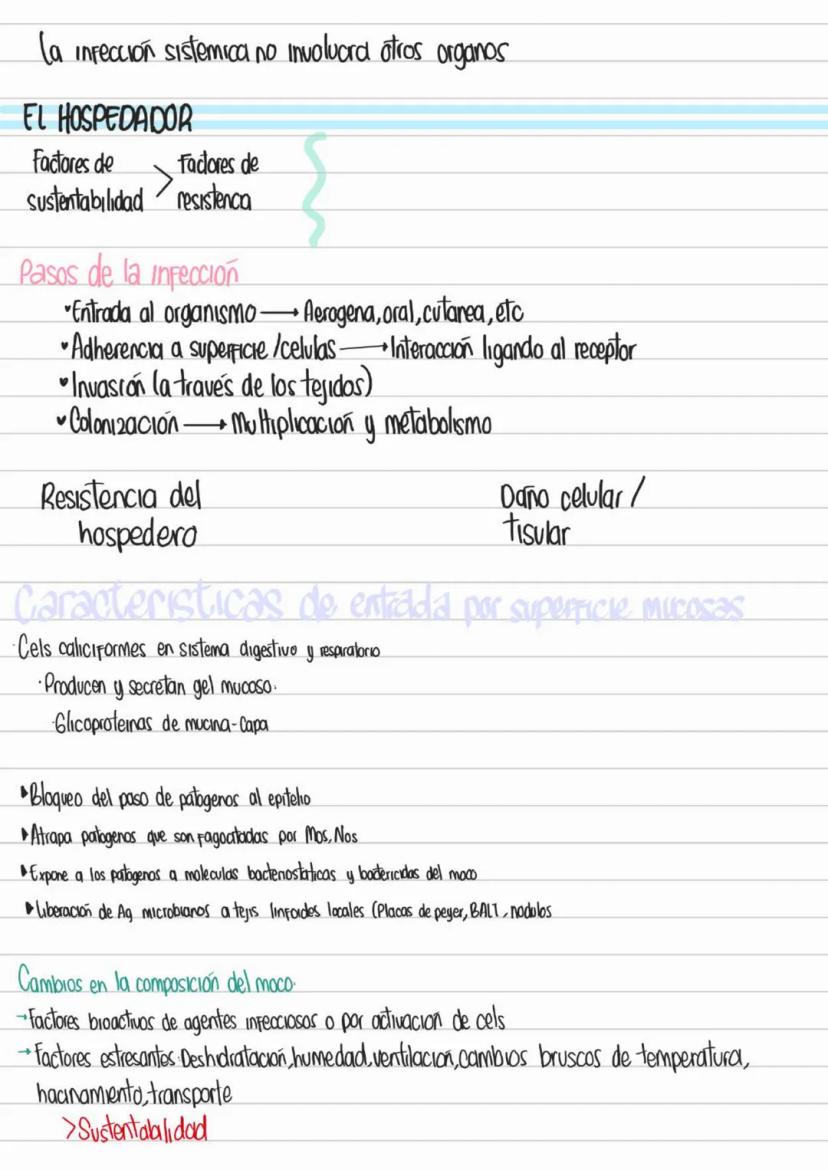 La infección sistemica no involucra otros organos
EL HOSPEDADOR
Factores de > Factores de
sustentabilidad resistenca
Pasos de la infección
•Entrada al organismo → Aerogena, oral, cutanea, etc
•Adherencia a superficie /celulas → Interacción ligando al receptor
•Invasión (a través de los tejidos)
•Colonización → Multiplicación y metabolismo
Resistencia del Daño celular /
hospedero tisular
Caracteristicas de entrada por superficie mucosas
·Cels caliciformes en sistema digestivo y respiratorio
·Producen y secretan gel mucoso.
·Glicoproteinas de mucina-Capa
▸Bloqueo del paso de patogenos al epitelio
▸Atrapa patogenos que son fagocitadas por Mos, Nos
▸Expone a los patogenos a moleculas bacteriostaticas y bactericidas del moco
▸Liberación de Ag microbianos a tejis linfoides locales (Placas de peyer, BALT, nodulos
Cambios en la composición del moco.
→Factores bioactivos de agentes infecciosos o por activacion de cels
→Factores estresantes: Deshidratación, humedad, ventilacion, cambios bruscos de temperatura,
hacinamiento, transporte
>Sustentabilidad